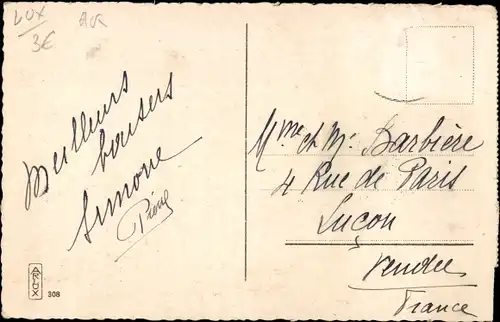 LUX
3€
Meilleurs
baisers
Simone
Mme et Mr Barbière
4 Rue de Paris
Luçon
Vendée
France
ARUX
308